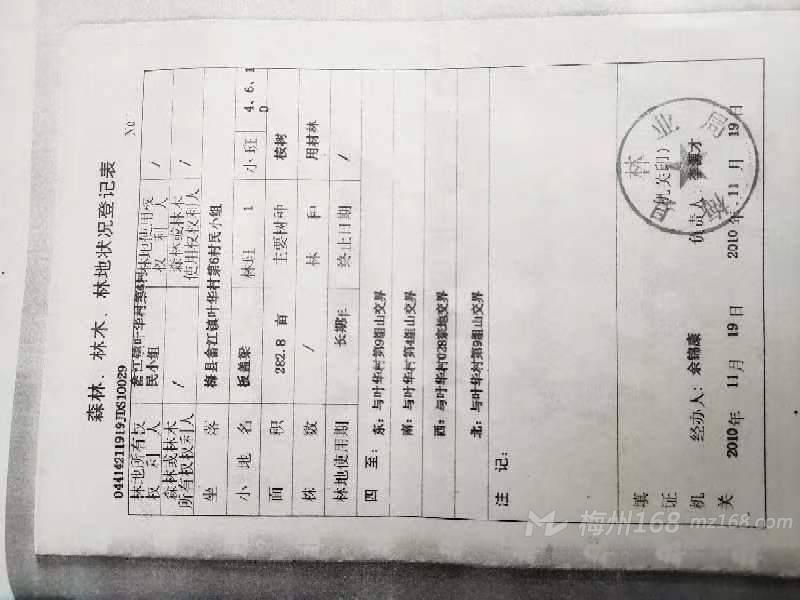 森林、林木、林地状况登记表
04414211919JDS10029
NO
林地所有权权利人
畲江镇叶华村第6村民小组
林地使用权权利人
/
森林或林木所有权权利人
/
森林或林木使用权权利人
/
坐落
梅县畲江镇叶华村第6村民小组
小地名
板盖梁
林班
1
小班
4、6、10
面积
282.8 亩
主要树种
桉树
株数
/
林种
用材林
林地使用期
长期年
终止日期
/
四至:
东:与叶华村第9组山交界
南:与叶华村第4组山交界
西:与叶华村028宗地交界
北:与叶华村第9组山交界
注记:
填证机关
(机关印)
林业局
经办人:余锦康
负责人:李
2010年 11月 19日
2010年 11月 19日
梅州168 mz168.com